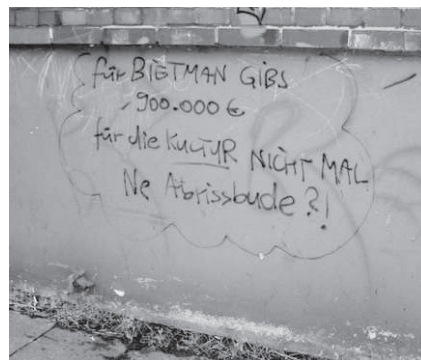 für BIETMAN GIBS
900.000 €
für die KULTUR NICHT MAL
Ne Abrissbude?!